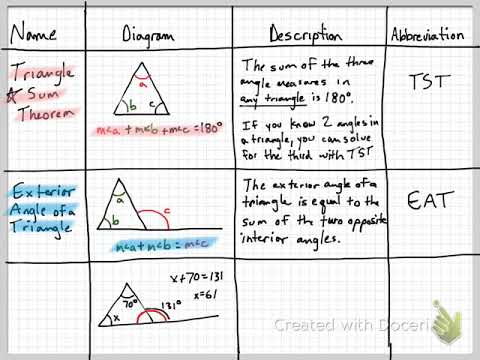 Name
Diagram
Description
Abbreviation
Triangle
Sum
Theorem
a
b
c
m∢a + m∢b + m∢c = 180°
The sum of the three
angle measures in
any triangle is 180°.
If you know 2 angles in
a triangle, you can solve
for the third with TST
TST
Exterior
Angle of a
Triangle
a
b
c
m∢a + m∢b = m∢c
The exterior angle of a
triangle is equal to the
sum of the two opposite
interior angles.
EAT
x+70=131
x=61
70°
x
131°
Created with Doceri